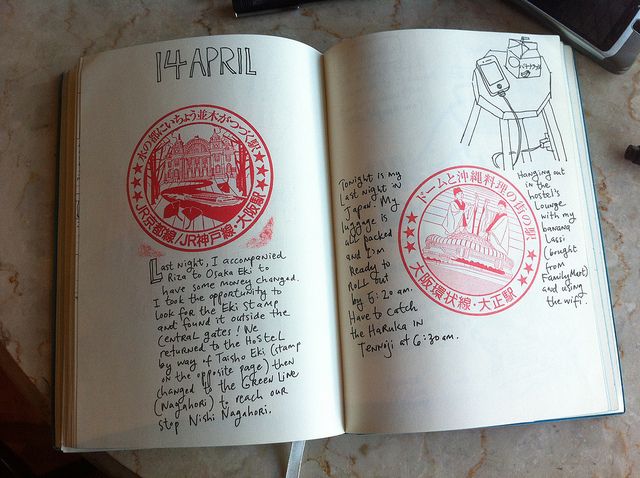 14 APRIL
水の都にいちょう並木がつづく駅
JR京都線/JR神戸線・大阪駅
Last night, I accompanied
Riza to Osaka Eki to
have some money changed.
I took the opportunity to
look for the Eki stamp
and found it outside the
central gates! We
returned to the Hostel
by way of Taisho Eki (stamp
on the opposite page) then
changed to the Green Line
(Nagahori) to reach our
stop Nishi Nagahori.
Tonight is my
last night in
Japan. My
luggage is
all packed
and I'm
ready to
roll out
by 5:20 am.
Have to catch
the Haruka in
Tennoji at 6:30am.
ドームと沖縄料理の街の駅
大阪環状線・大正駅
Hanging out
in the
hostel's
lounge
with my
banana
lassi
(bought
from
FamilyMart)
and using
the wifi.